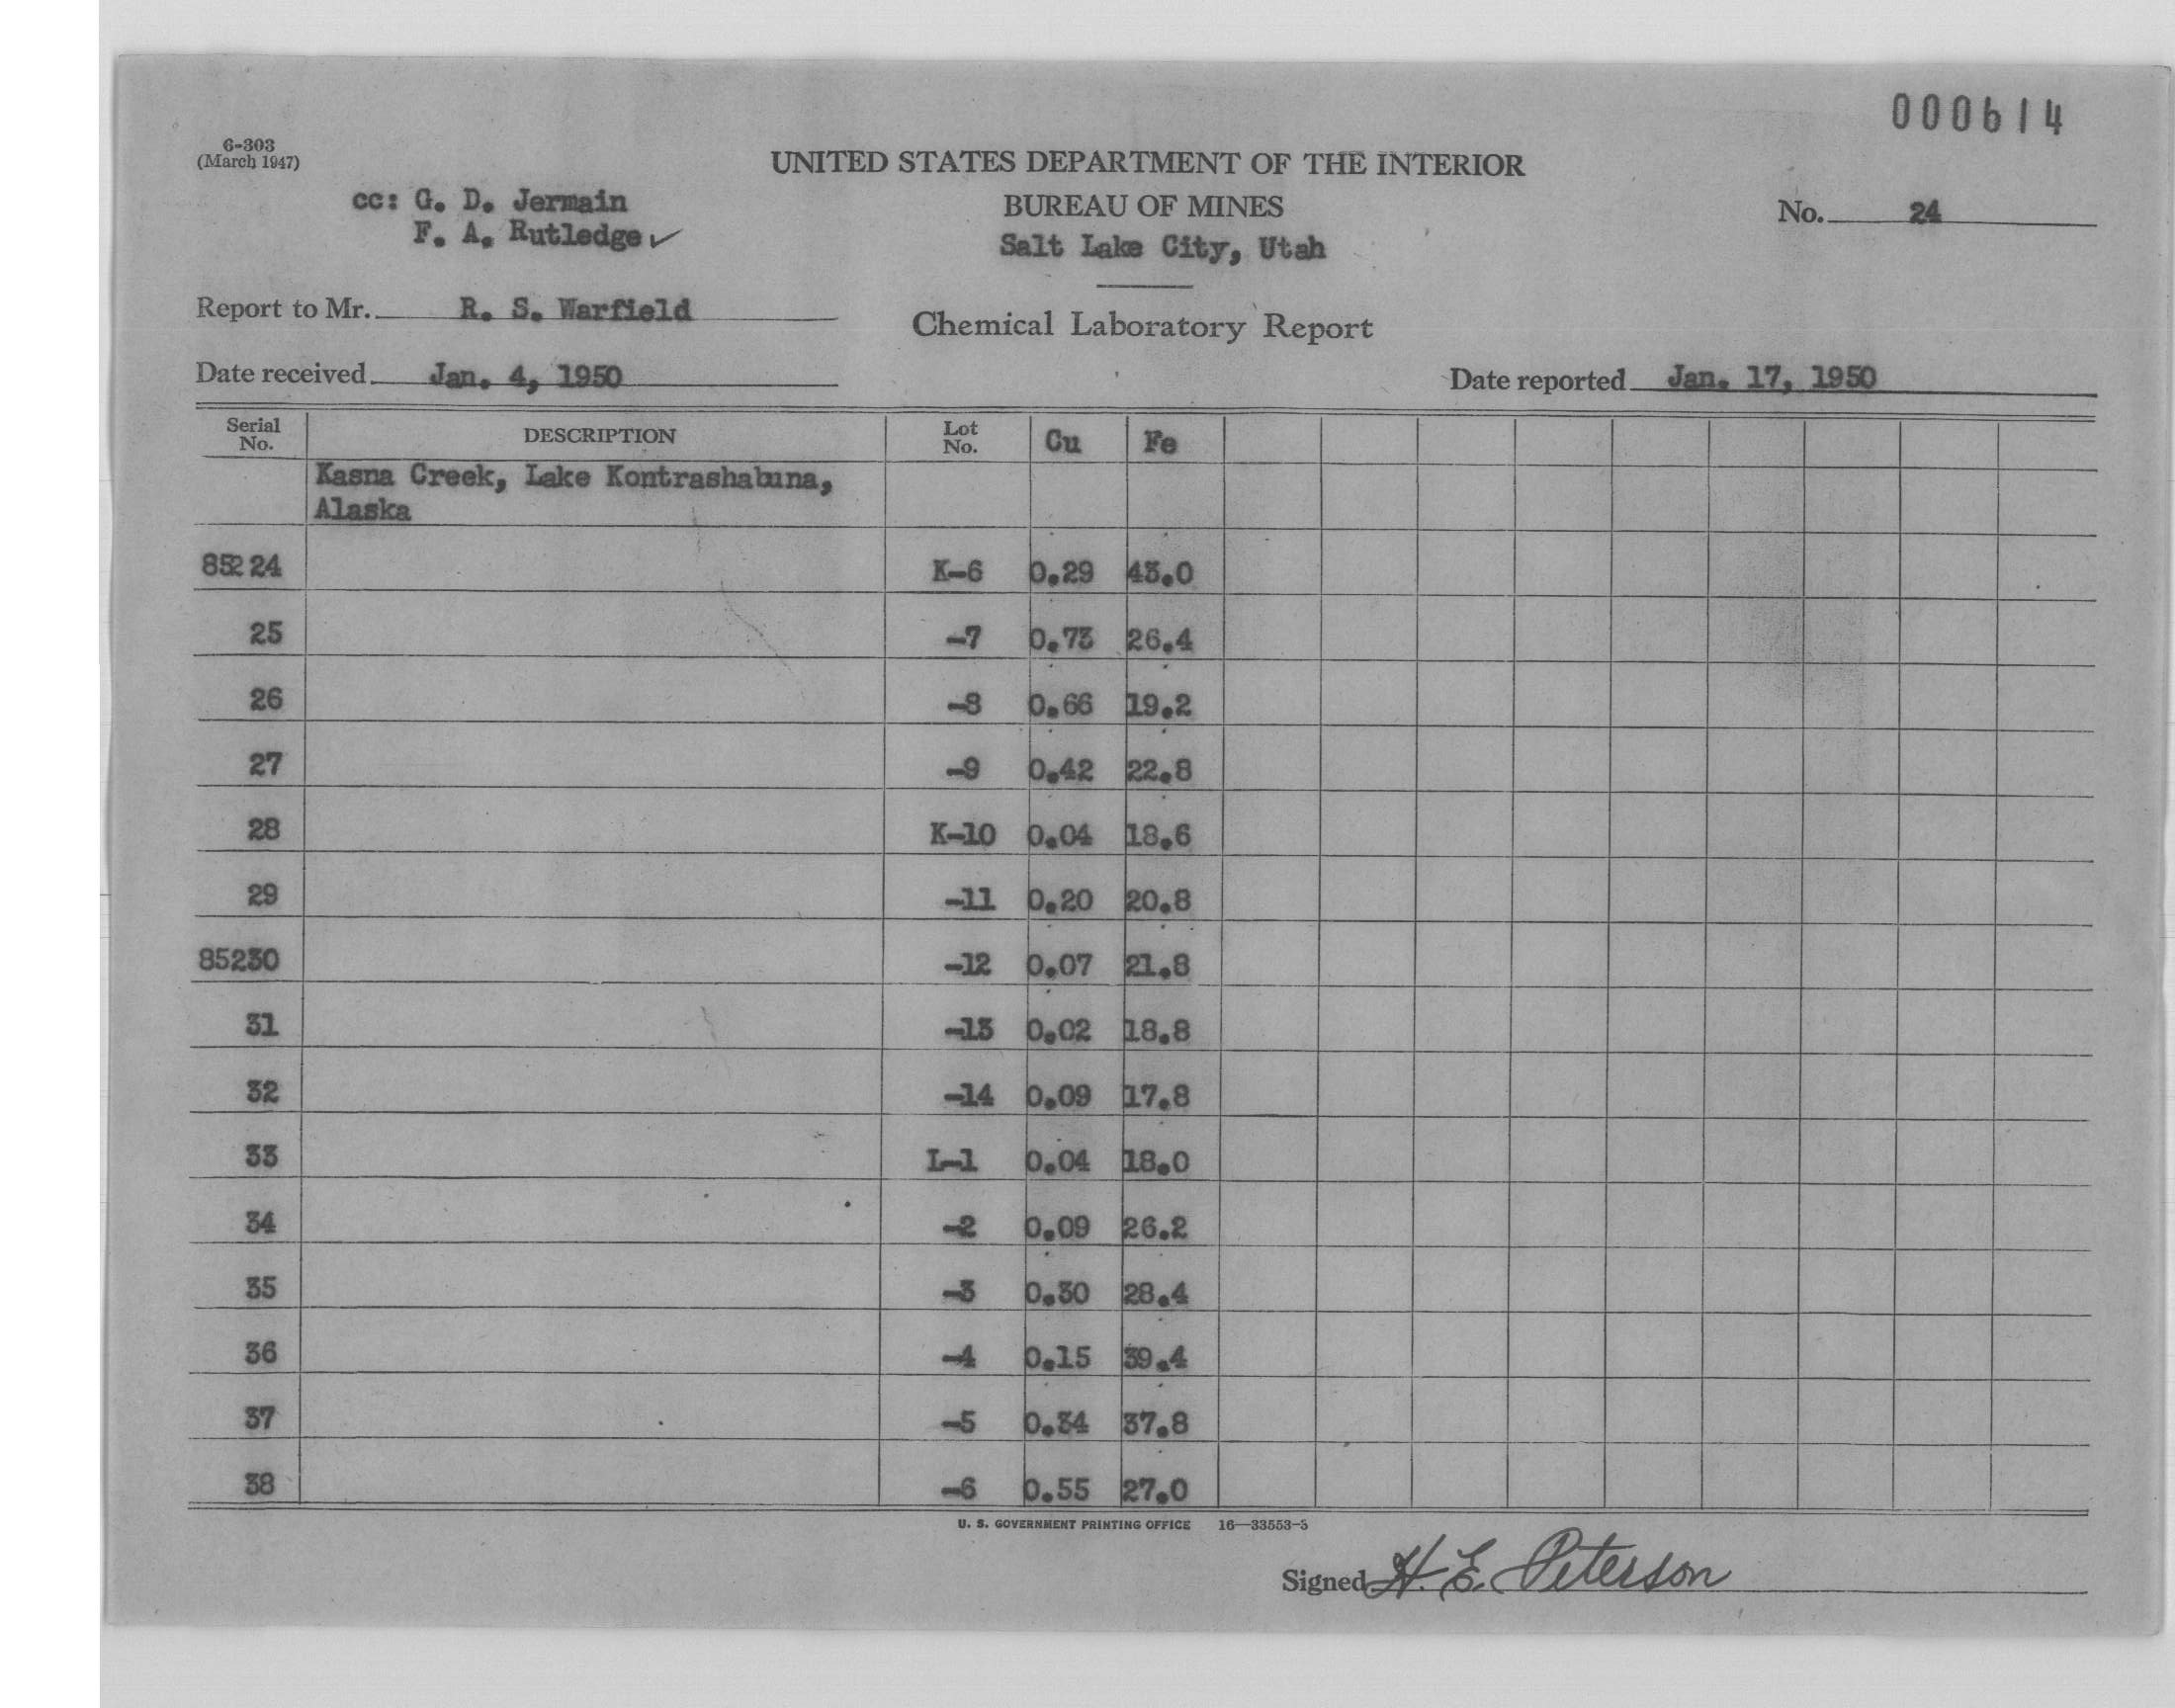 000614
6-303
(March 1947)
UNITED STATES DEPARTMENT OF THE INTERIOR
cc: G. D. Jermain
BUREAU OF MINES
No. 24
F. A. Rutledge ✓
Salt Lake City, Utah
Report to Mr. R. S. Warfield
Chemical Laboratory Report
Date received Jan. 4, 1950
Date reported Jan. 17, 1950
Serial No. DESCRIPTION Lot No. Cu Fe
Kasna Creek, Lake Kontrashabuna,
Alaska
85224 K-6 0.29 43.0
25 -7 0.73 26.4
26 -8 0.66 19.2
27 -9 0.42 22.8
28 K-10 0.04 18.6
29 -11 0.20 20.8
85230 -12 0.07 21.8
31 -13 0.02 18.8
32 -14 0.09 17.8
33 L-1 0.04 18.0
34 -2 0.09 26.2
35 -3 0.30 28.4
36 -4 0.15 39.4
37 -5 0.34 37.8
38 -6 0.55 27.0
U. S. GOVERNMENT PRINTING OFFICE 16—33553-3
Signed H. E. Peterson